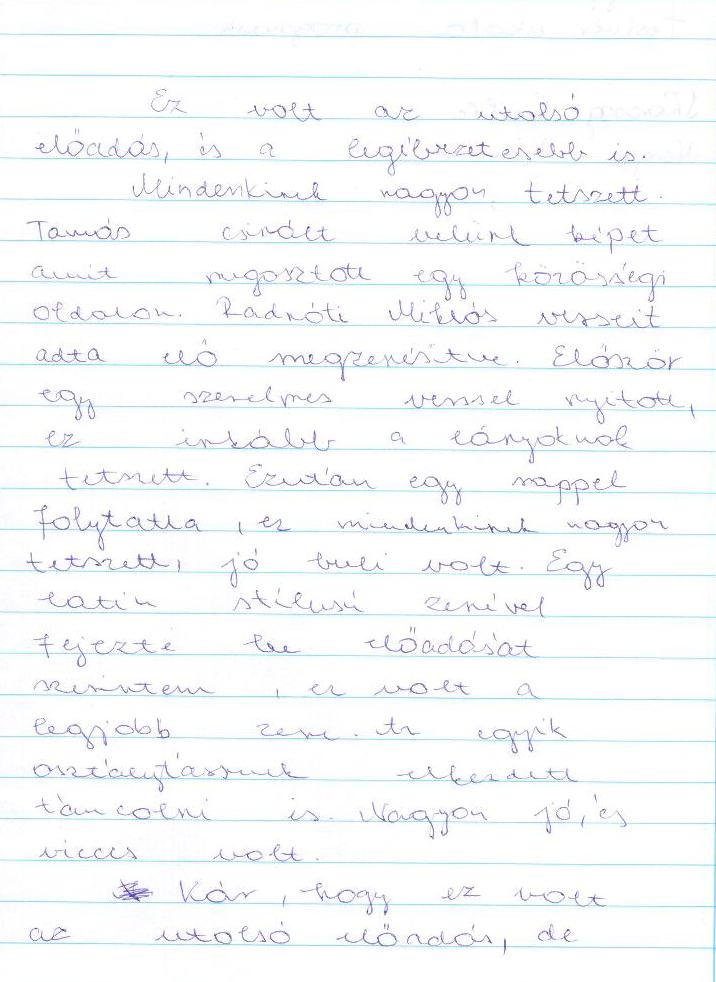 Ez volt az utolsó
előadás, és a legélvezetesebb is.
Mindenkinek nagyon tetszett.
Tamás csinált velünk képet
amit megosztott egy közösségi
oldalon. Radnóti Miklós verseit
adta elő megzenésitve. Először
egy szerelmes verssel nyitott,
ez inkább a lányoknak
tetszett. Ezután egy rappel
folytatta, ez mindenkinek nagyon
tetszett, jó buli volt. Egy
latin stílusú zenével
fejezte be előadását
szerintem, ez volt a
legjobb zene. Az egyik
osztálytársunk elkezdett
táncolni is. Nagyon jó, és
vicces volt.
Kár, hogy ez volt
az utolsó előadás, de